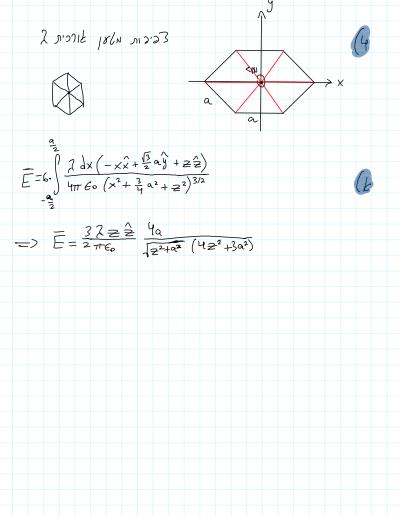 (4
צפיפות מטען אורכית λ
y
x
a
a
(א
E̅ = 6·∫_{-a/2}^{a/2} λ dx (-x x̂ + √3/2 a ŷ + z ẑ) / 4πε₀ (x² + 3/4 a² + z²)^{3/2}
⇒ E̅ = 3λ z ẑ / 2πε₀ · 4a / √(z²+a²) (4z²+3a²)